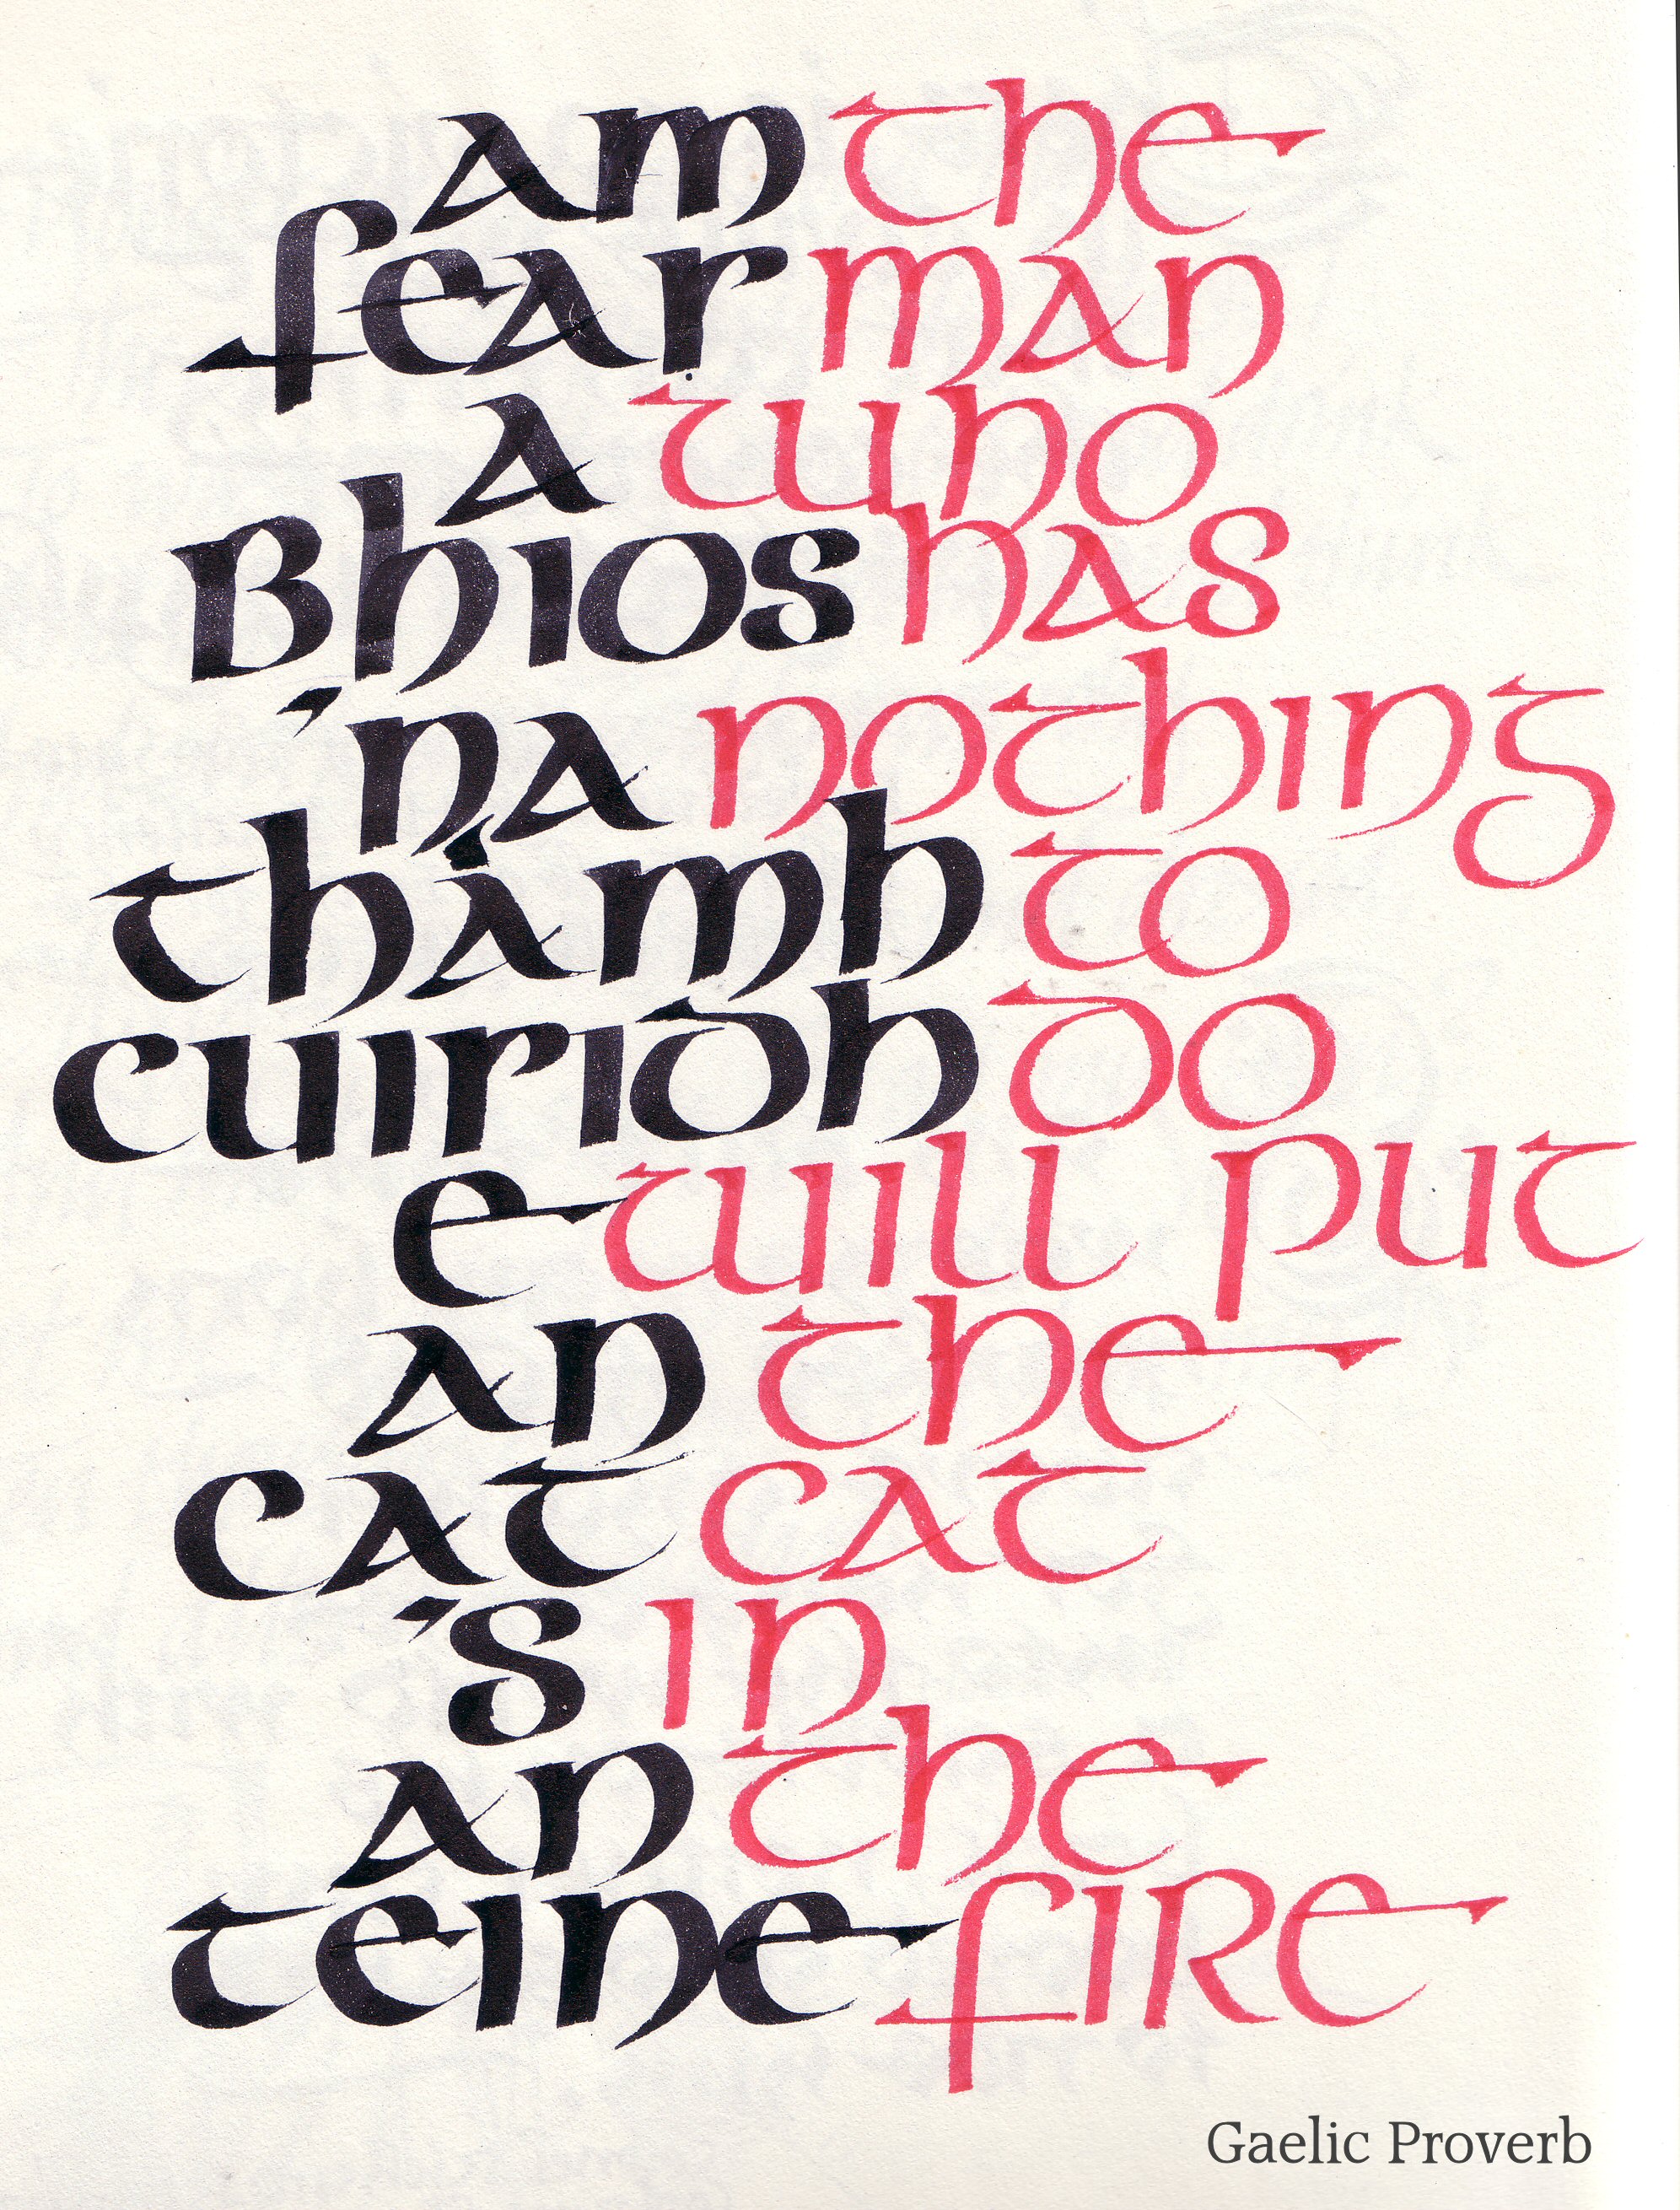 am the
fear man
a who
Bhios has
'na nothing
thàmh to
cuiridh do
e will put
an the
cat cat
's in
an the
teine fire
Gaelic Proverb